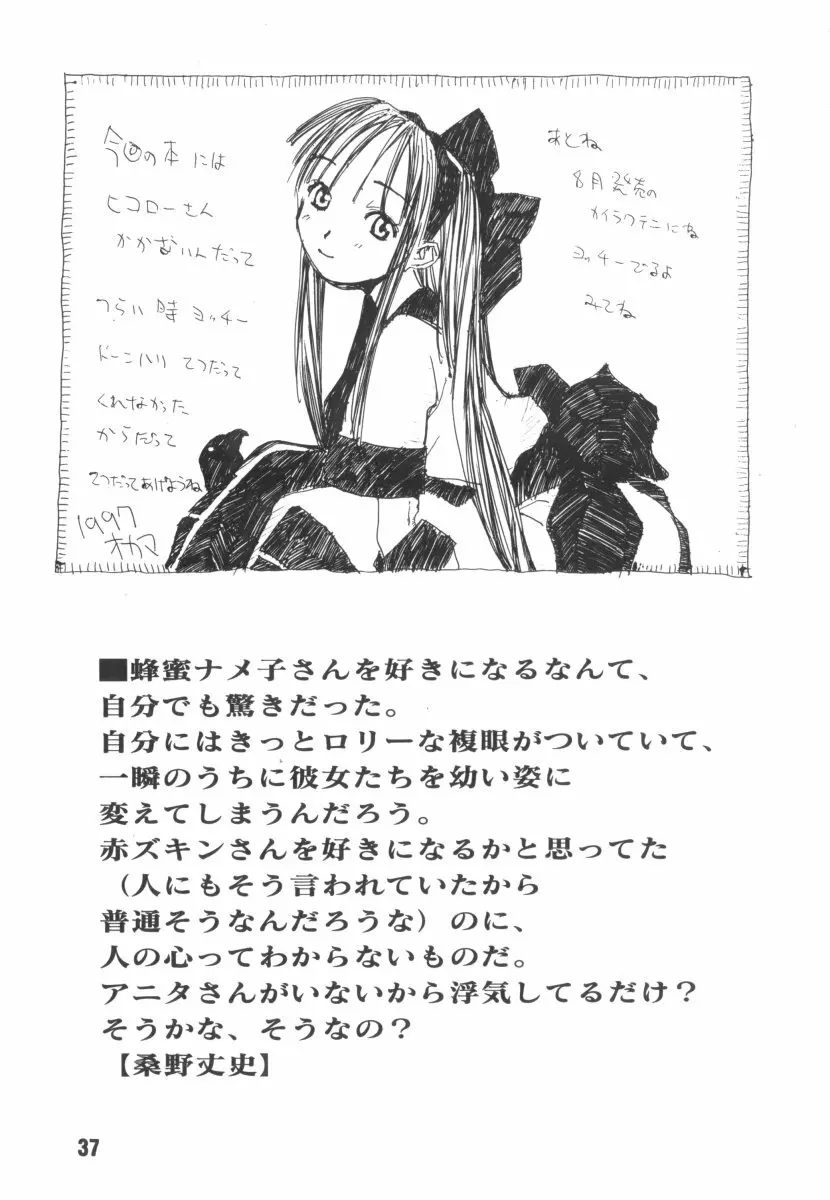 今回の本には
ヒコローさん
かかないんだって
つらい時 ヨッチー
てつだって
くれなかった
からだって
てつだってあげようね
1997
オカマ
あとね
8月発売の
カイラクテンにね
ヨッチーでるよ
みてね
■蜂蜜ナメ子さんを好きになるなんて、
自分でも驚きだった。
自分にはきっとロリーな複眼がついていて、
一瞬のうちに彼女たちを幼い姿に
変えてしまうんだろう。
赤ズキンさんを好きになるかと思ってた
（人にもそう言われていたから
普通そうなんだろうな）のに、
人の心ってわからないものだ。
アニタさんがいないから浮気してるだけ？
そうかな、そうなの？
【桑野丈史】
37